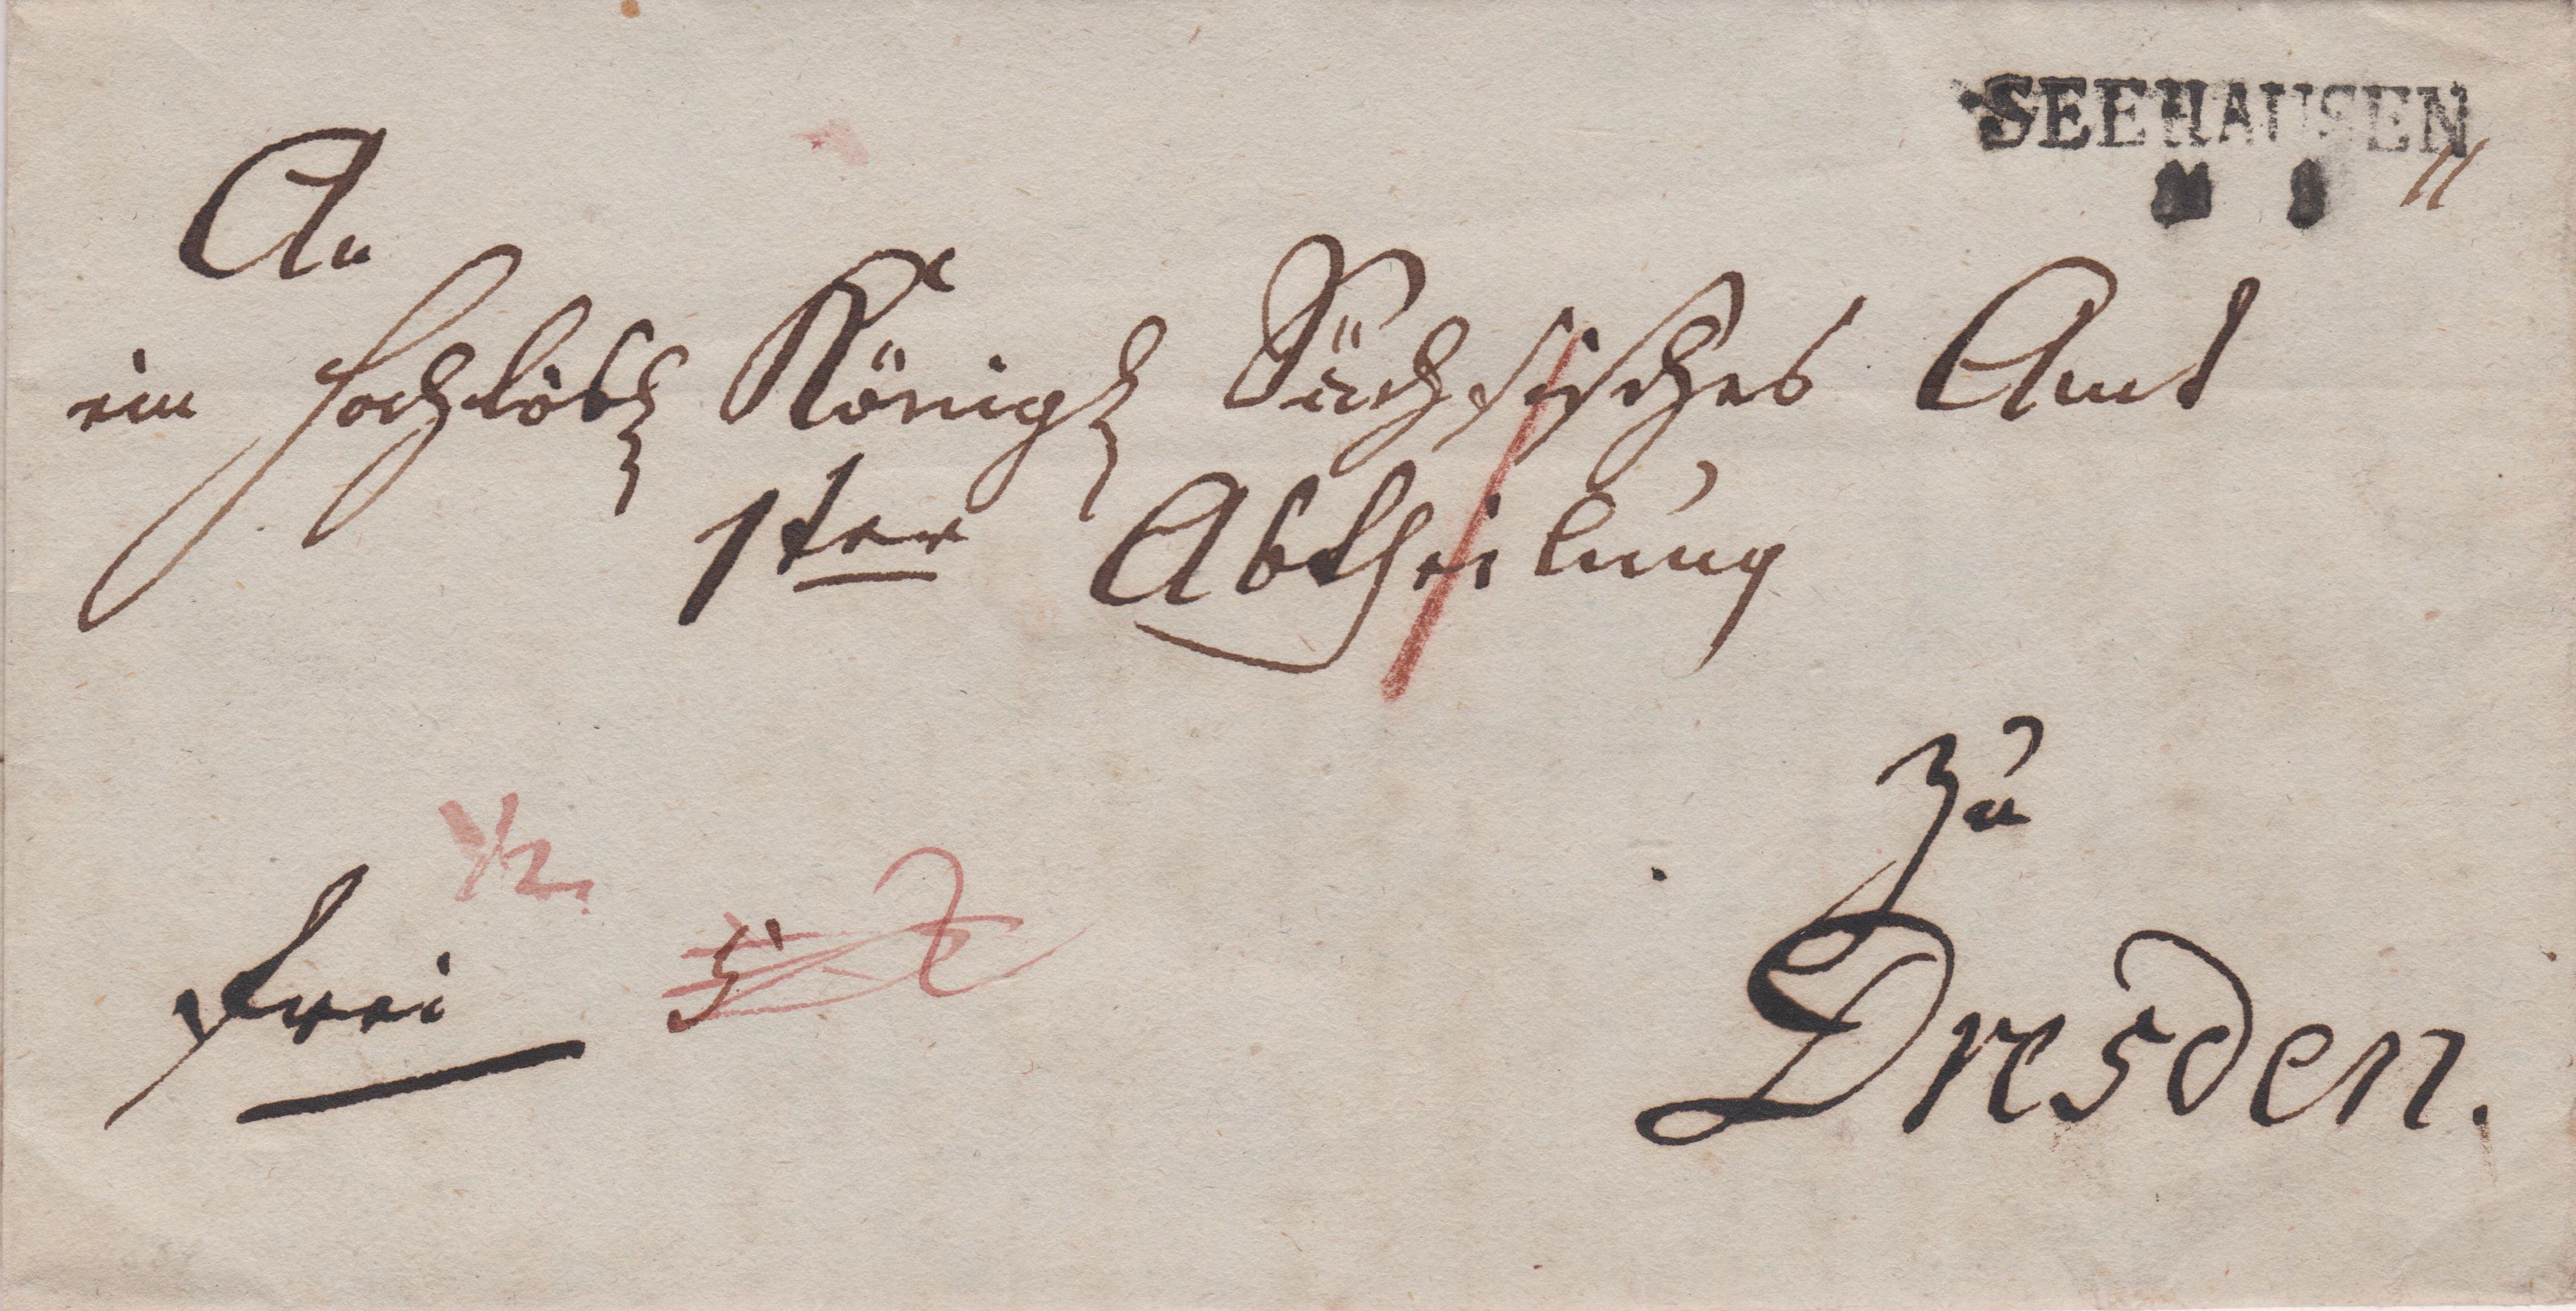 SEEHAUSEN
An
ein hochlöbl Königl Sächsisches Amt
1ter Abtheilung
zu
Dresden.
1/2
frei 5